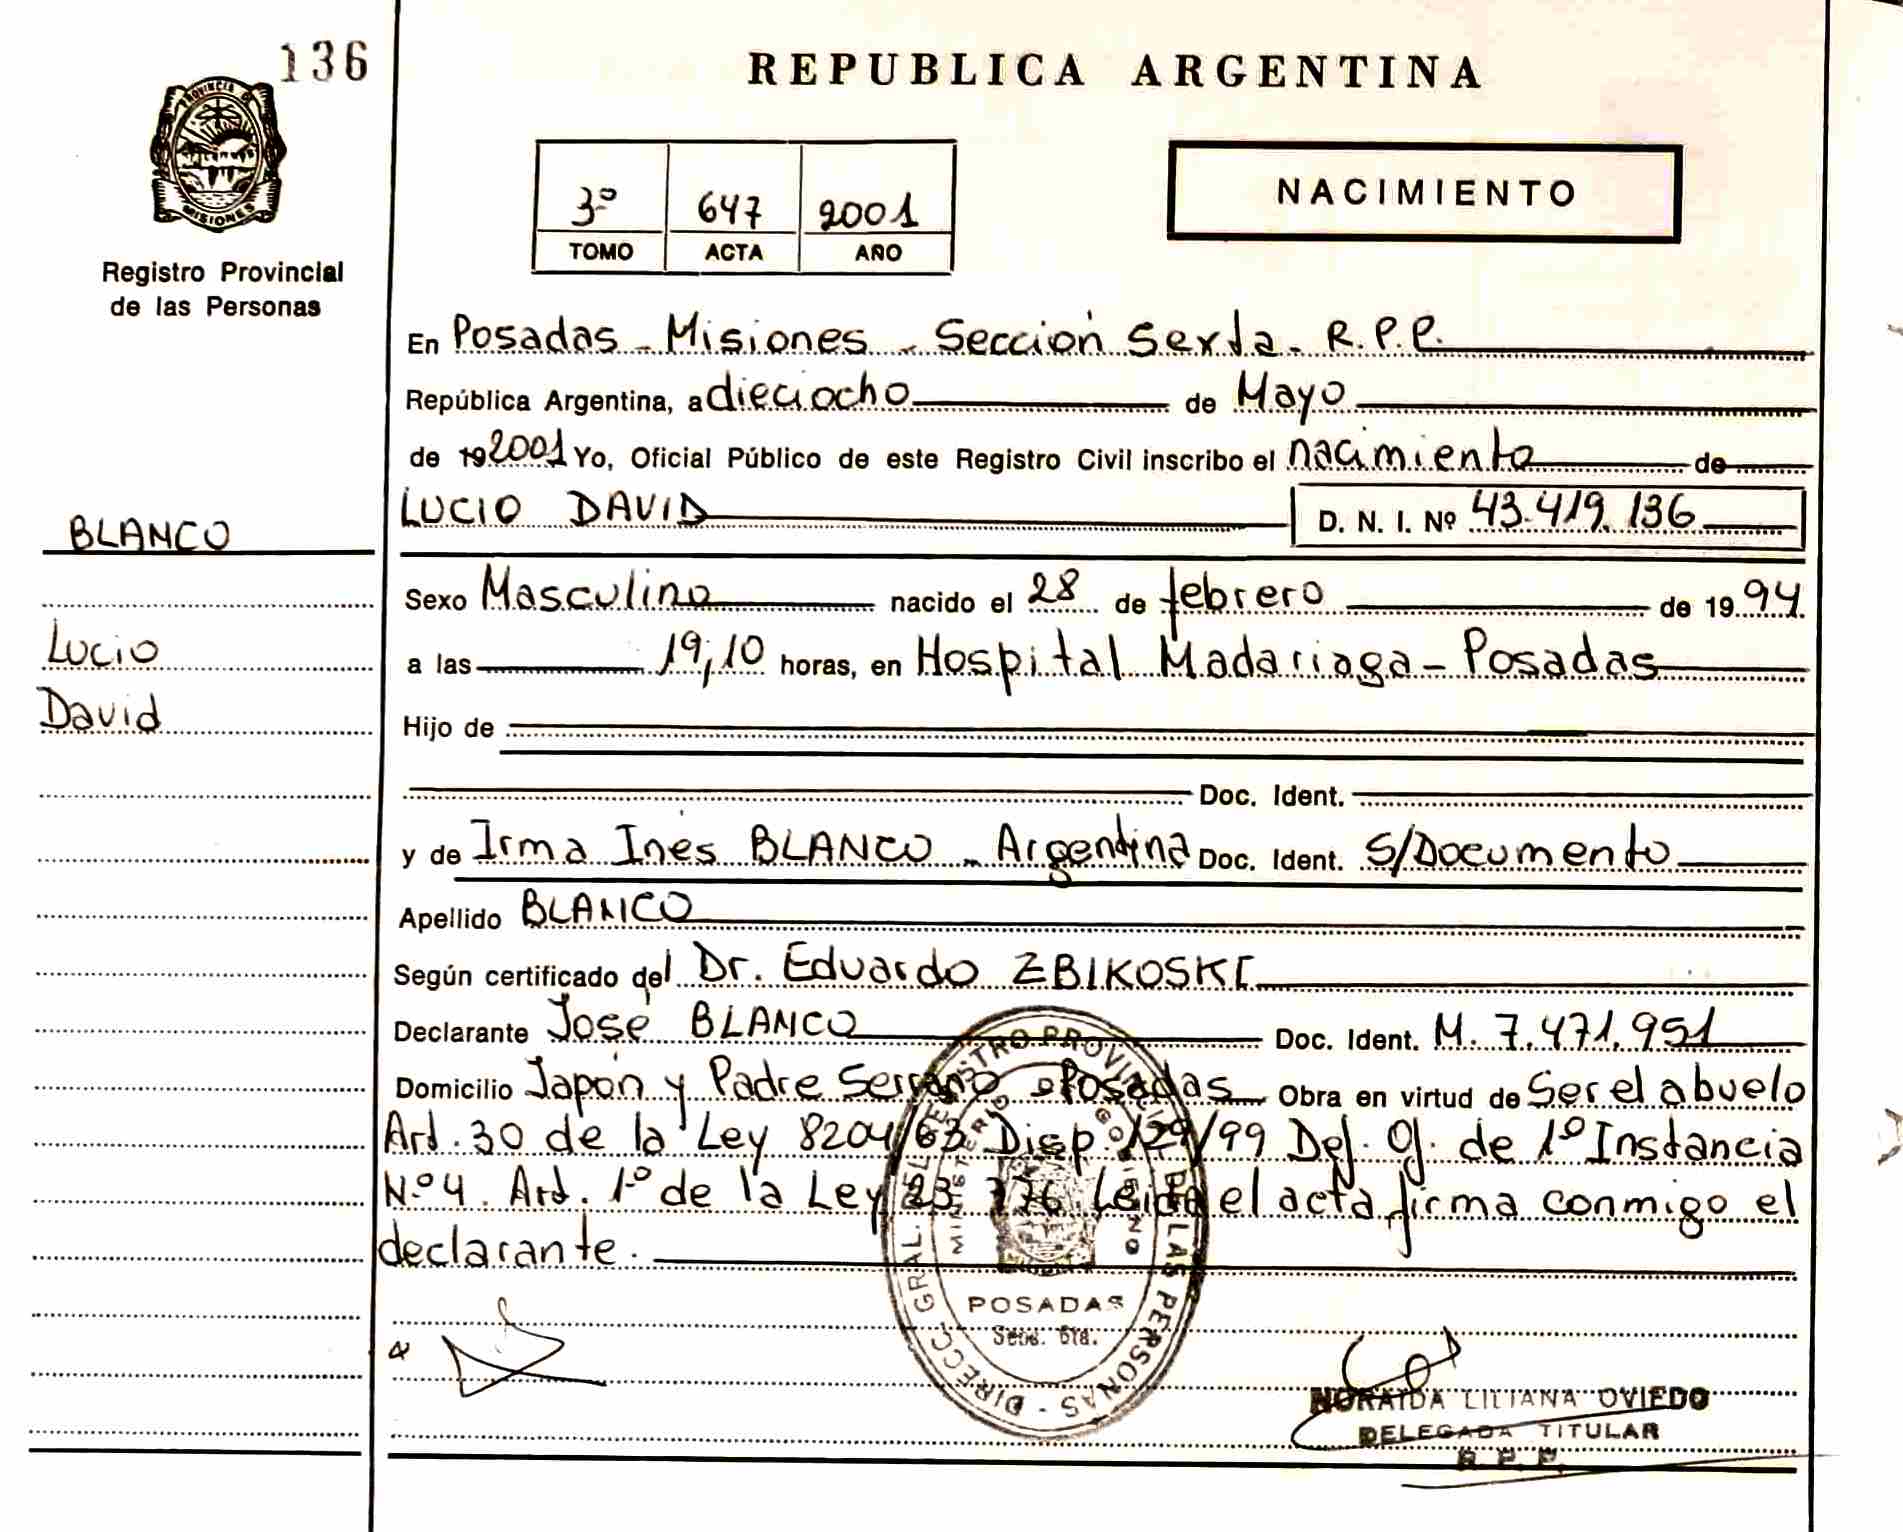 136
REPUBLICA ARGENTINA
PROVINCIA DE
MISIONES
Registro Provincial
de las Personas
3º 647 2001
TOMO ACTA AÑO
NACIMIENTO
En Posadas - Misiones - Sección Sexta - R.P.P.
República Argentina, a dieciocho de Mayo
de 19 2001 Yo, Oficial Público de este Registro Civil inscribo el nacimiento de
LUCIO DAVID D. N. I. Nº 43.419.136
BLANCO
Lucio
David
Sexo Masculino nacido el 28 de febrero de 19 94
a las 19,10 horas, en Hospital Madariaga - Posadas
Hijo de
Doc. Ident.
y de Irma Inés BLANCO - Argentina Doc. Ident. S/Documento
Apellido BLANCO
Según certificado del Dr. Eduardo ZBIKOSKI
Declarante José BLANCO Doc. Ident. M. 7.471.951
Domicilio Japón y Padre Serrano - Posadas Obra en virtud de Ser el abuelo
Art. 30 de la Ley 8204/63 Disp. 129/99 Def. Of. de 1º Instancia
Nº4. Art. 1º de la Ley 23.776 Leída el acta firma conmigo el
declarante.
DIRECC. GRAL. DEL REGISTRO PROVINCIAL DE LAS PERSONAS
MINISTERIO GOBIERNO
POSADAS
Secc. 6ta.
NORAIDA LILIANA OVIEDO
DELEGADA TITULAR
R. P. P.